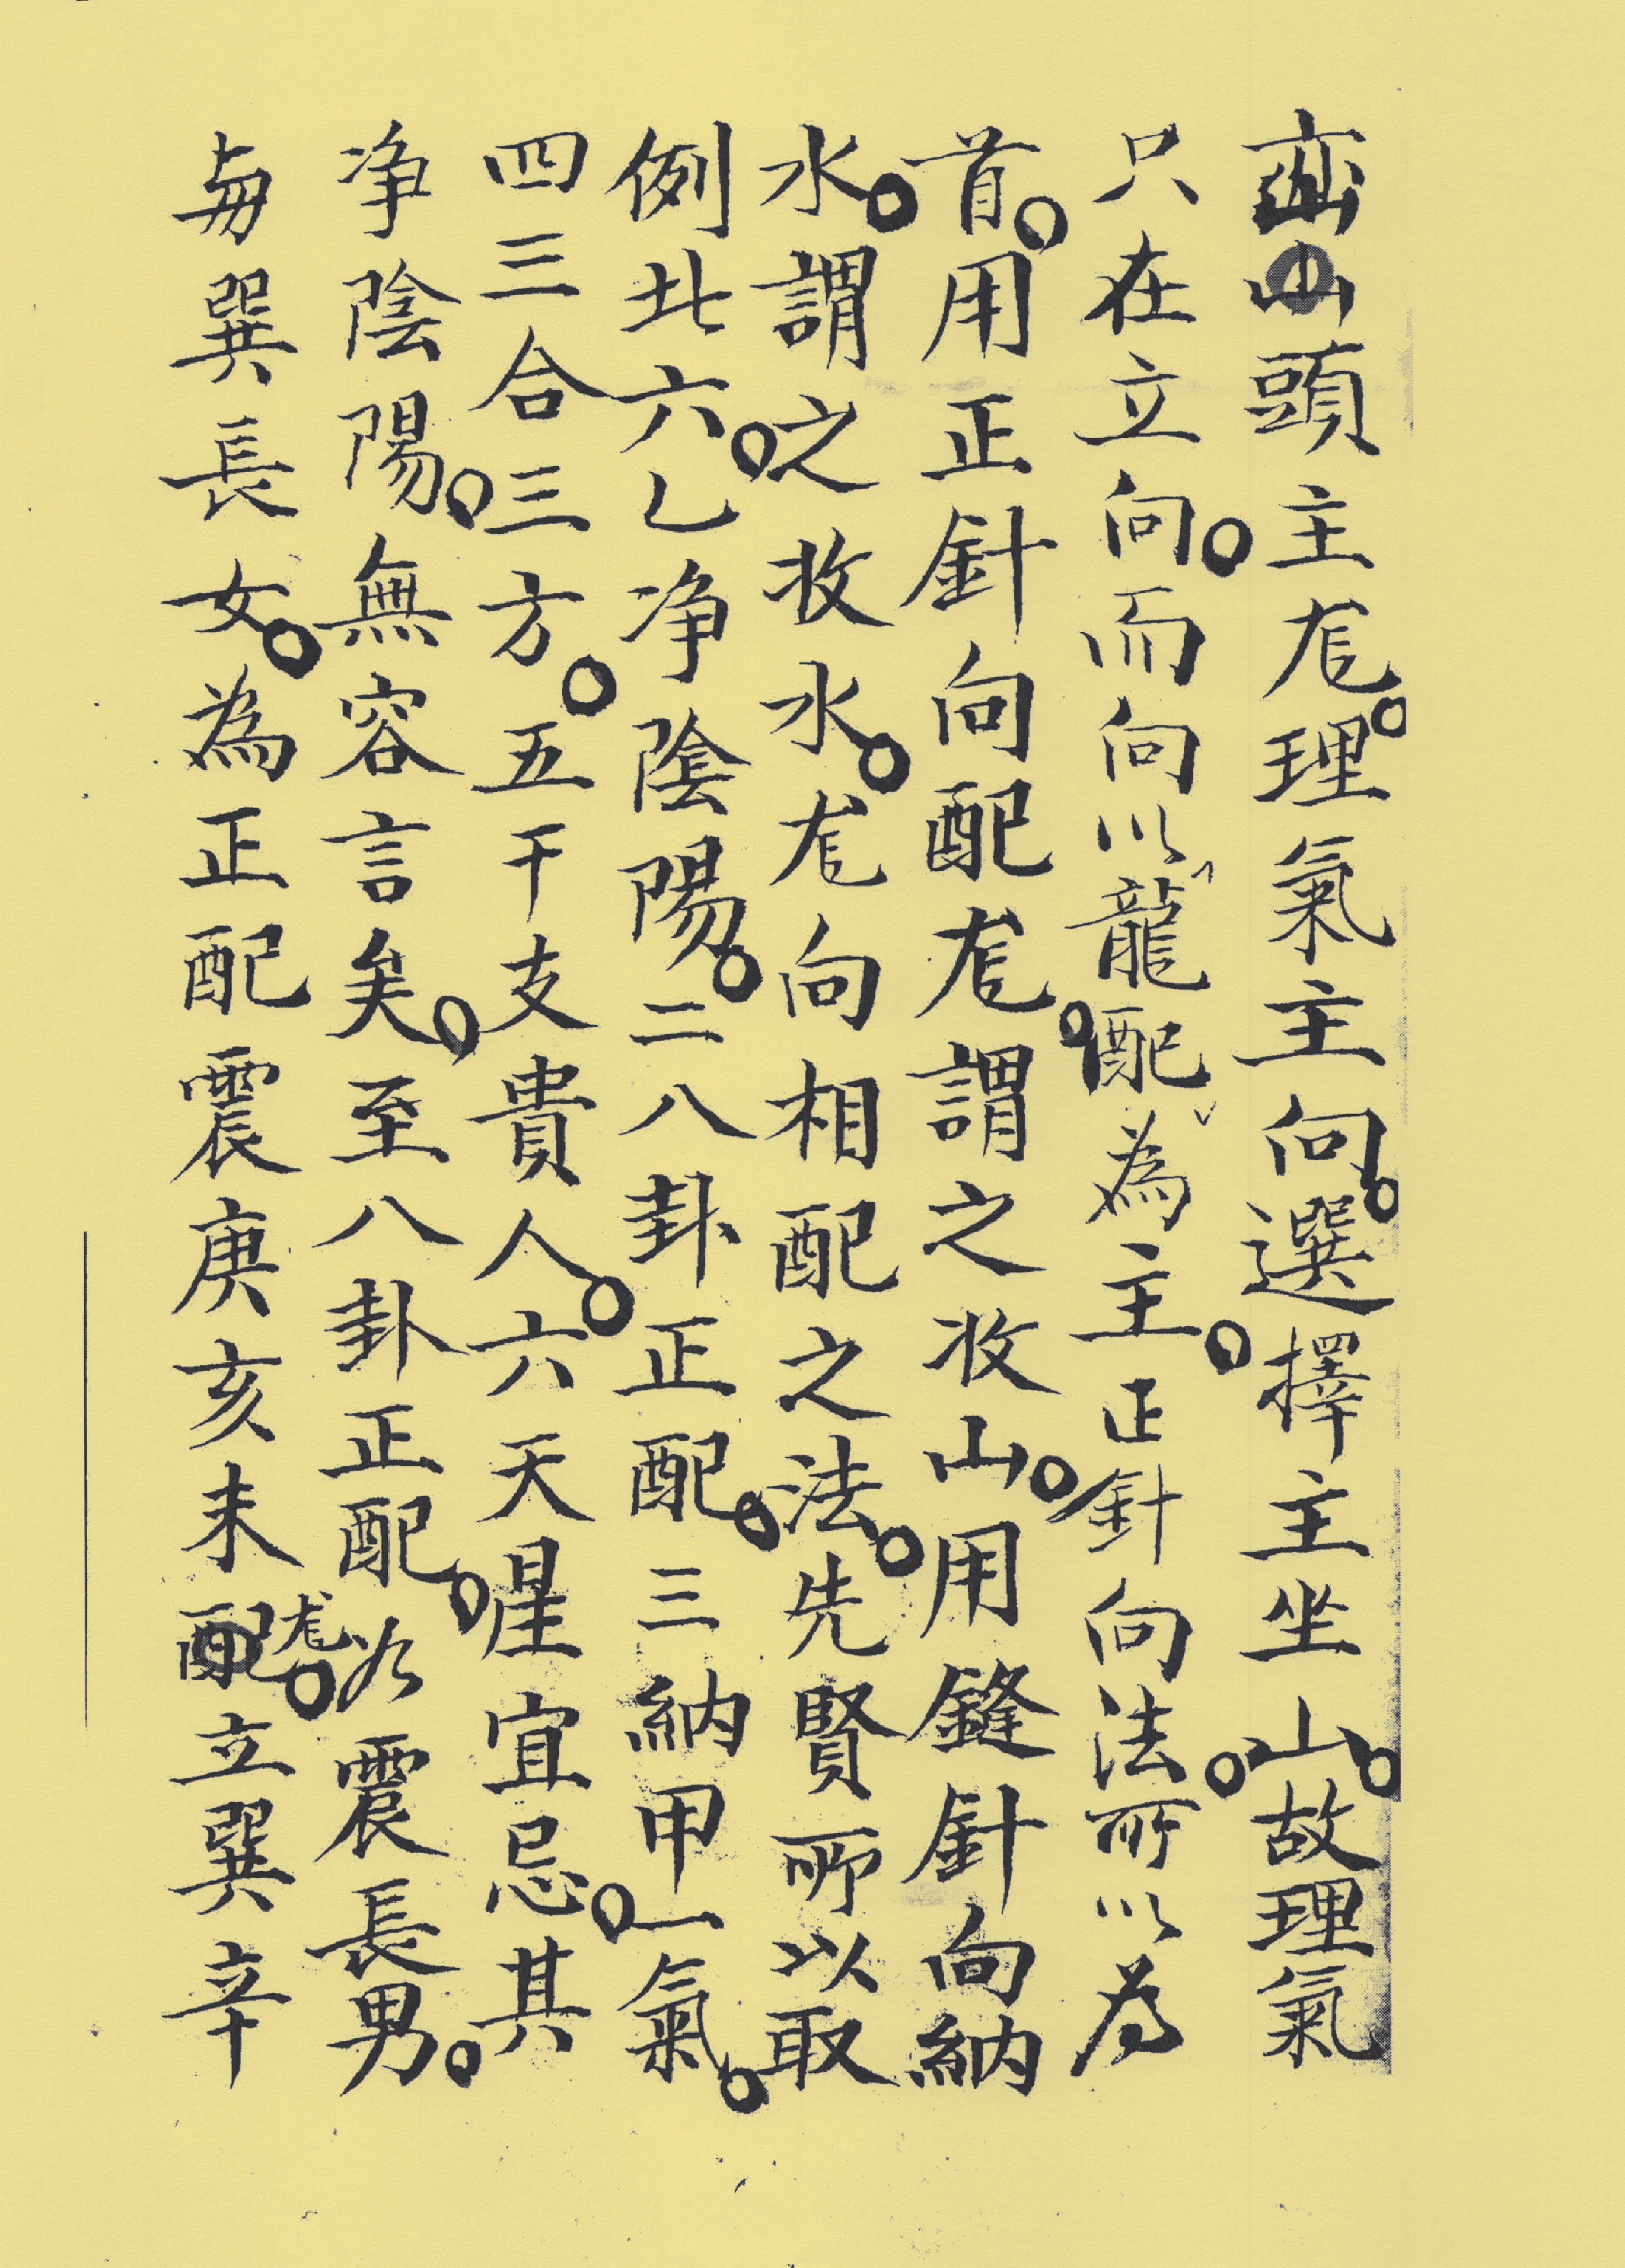 峦山頭主龙。理氣主向。選擇主坐山。故理氣
只在立向。而向以龍配為主。正針向法。所以為
首。用正針向配龙。謂之收山。用鏠針向納
水。謂之收水。龙向相配之法。先賢所以取
例此六。乚净陰陽。二八卦正配。三納甲一氣。
四三合三方。五干支貴人。六天星宜忌。其
净陰陽。無容言矣。至八卦正配。如震長男。
每巽長女。為正配震庚亥未配龙。立巽辛